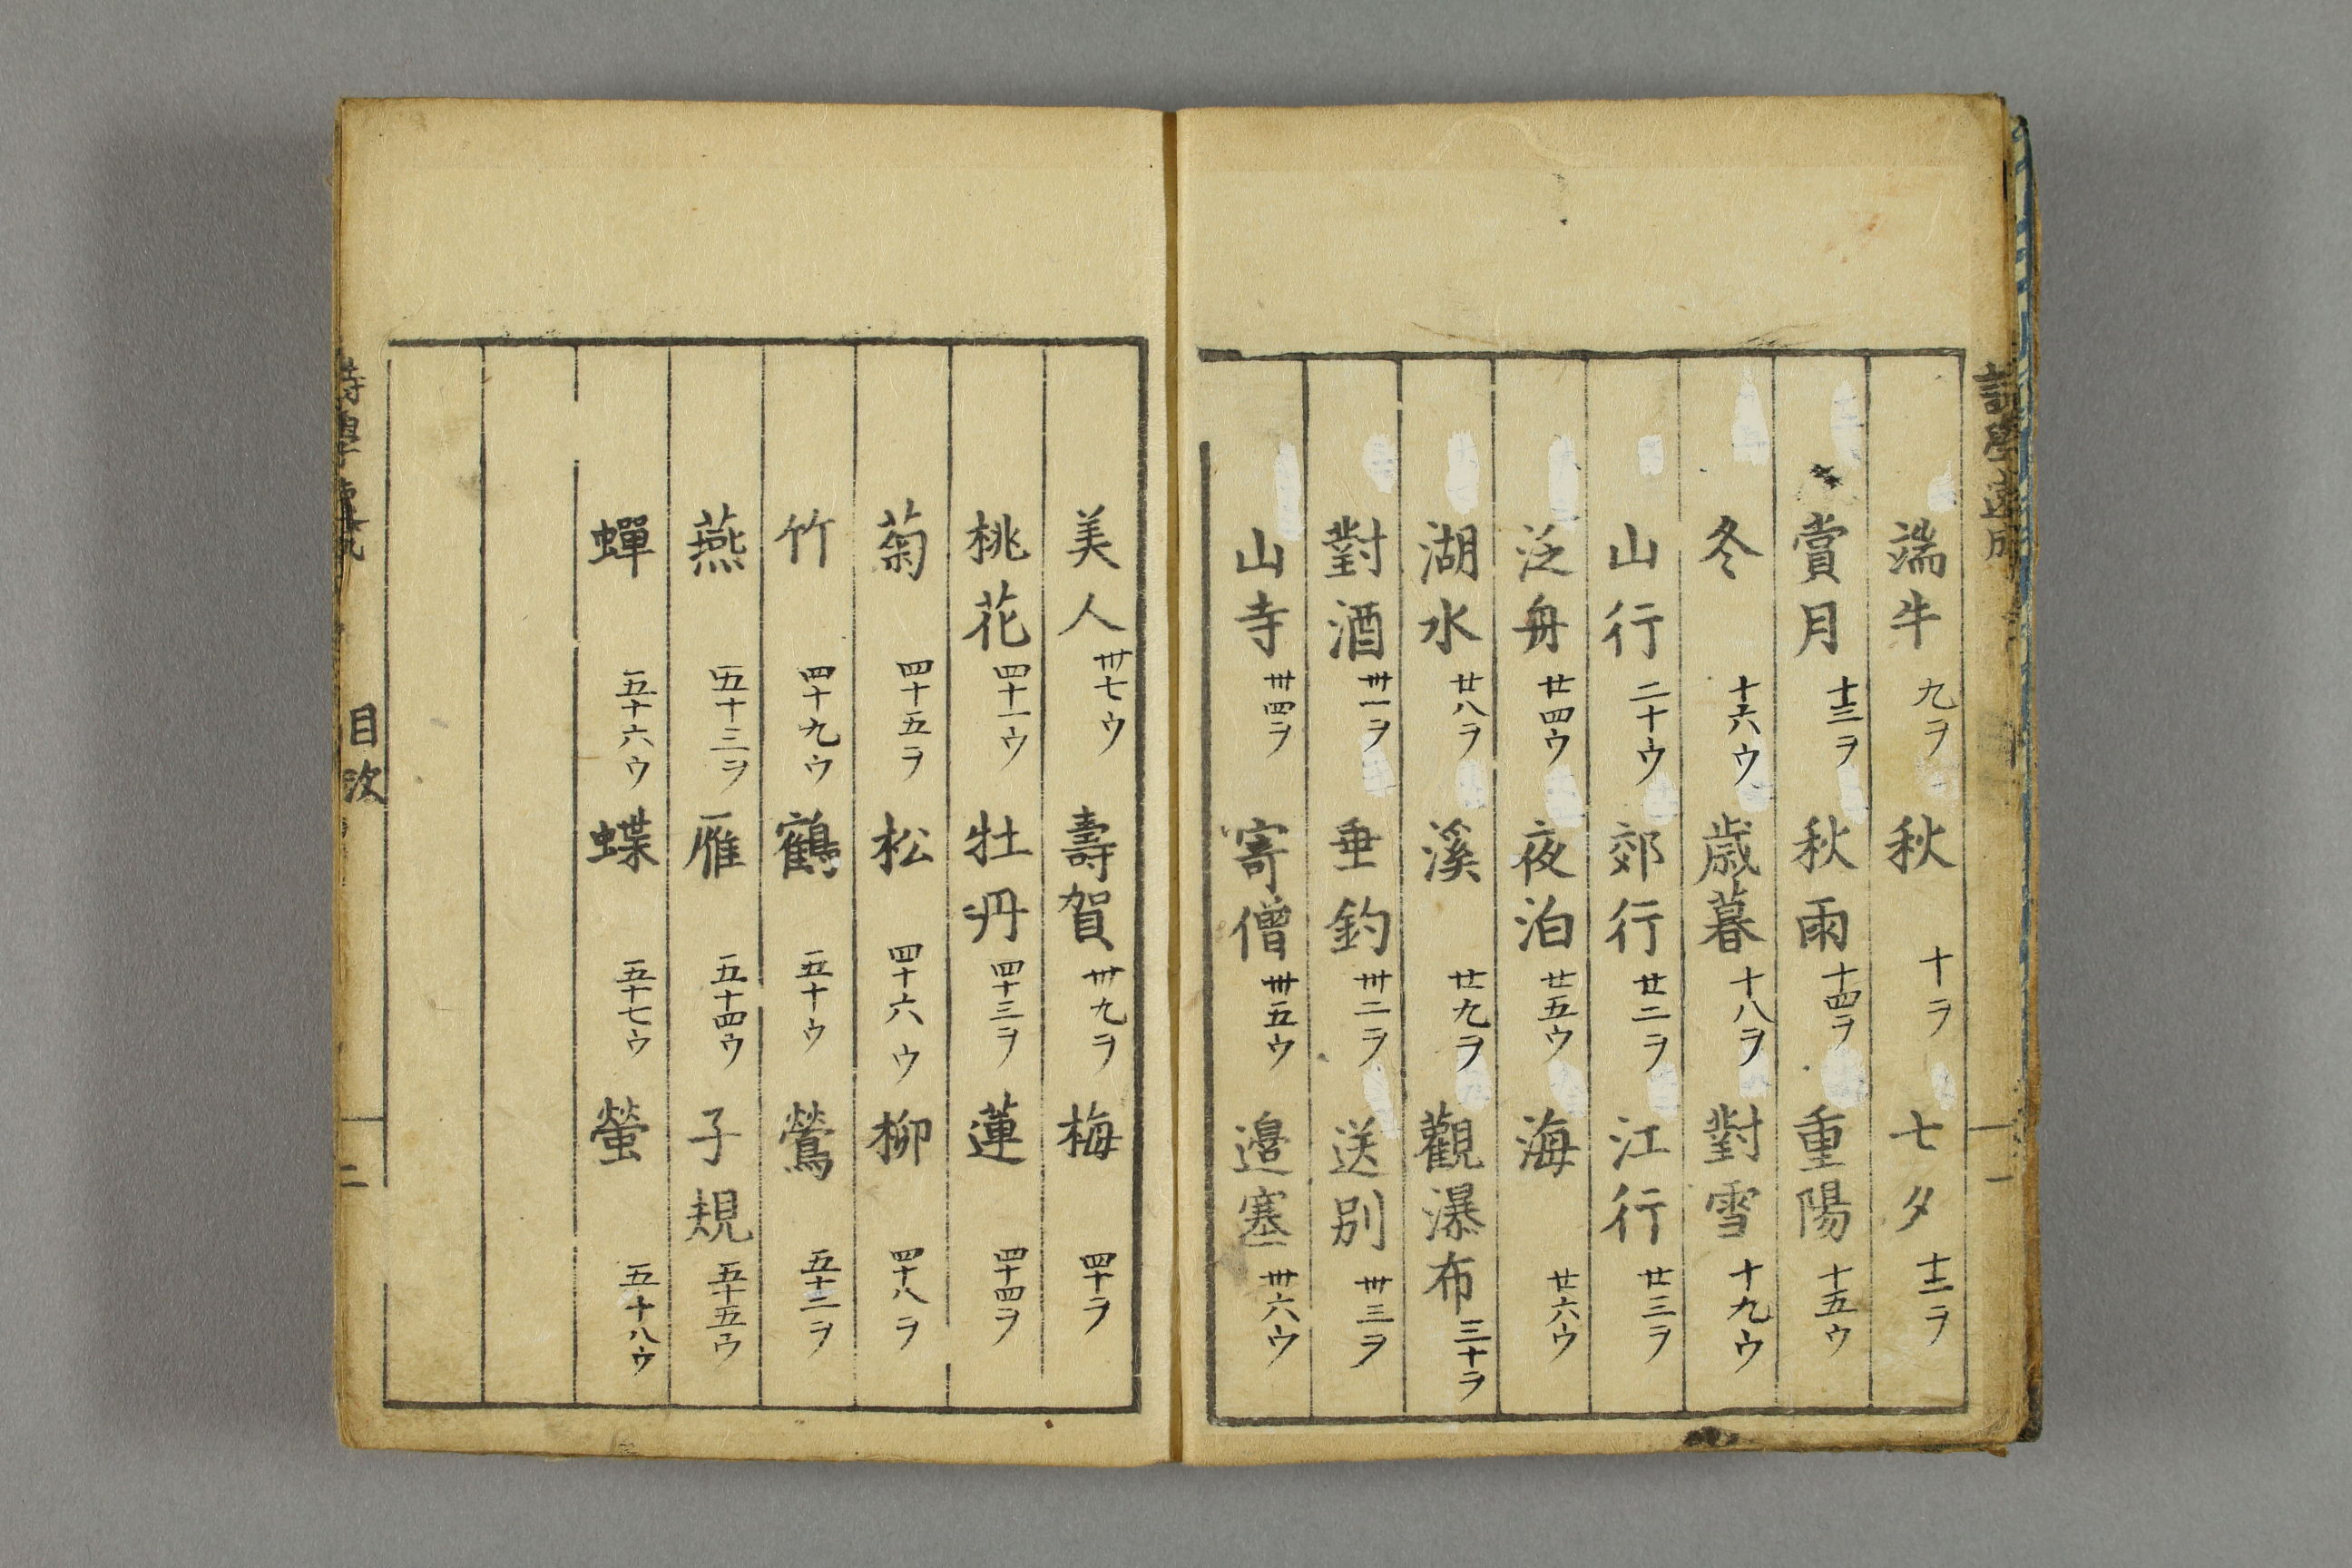 端午 九ヲ 秋 十ヲ 七夕 十二ヲ
賞月 十三ヲ 秋雨 十四ヲ 重陽 十五ウ
冬 十六ウ 歳暮 十八ヲ 對雪 十九ウ
山行 二十ウ 郊行 廿二ヲ 江行 廿三ヲ
泛舟 廿四ウ 夜泊 廿五ウ 海 廿六ウ
湖水 廿八ヲ 溪 廿九ヲ 觀瀑布 三十ヲ
對酒 卅一ヲ 垂釣 卅二ヲ 送別 卅三ヲ
山寺 卅四ヲ 寄僧 卅五ウ 邉塞 卅六ウ
一
美人 卅七ウ 壽賀 卅九ヲ 梅 四十ヲ
桃花 四十一ウ 牡丹 四十三ヲ 蓮 四十四ヲ
菊 四十五ヲ 松 四十六ウ 柳 四十八ヲ
竹 四十九ウ 鶴 五十ウ 鶯 五十二ヲ
燕 五十三ヲ 雁 五十四ウ 子規 五十五ウ
蟬 五十六ウ 蝶 五十七ウ 螢 五十八ウ
目次 二